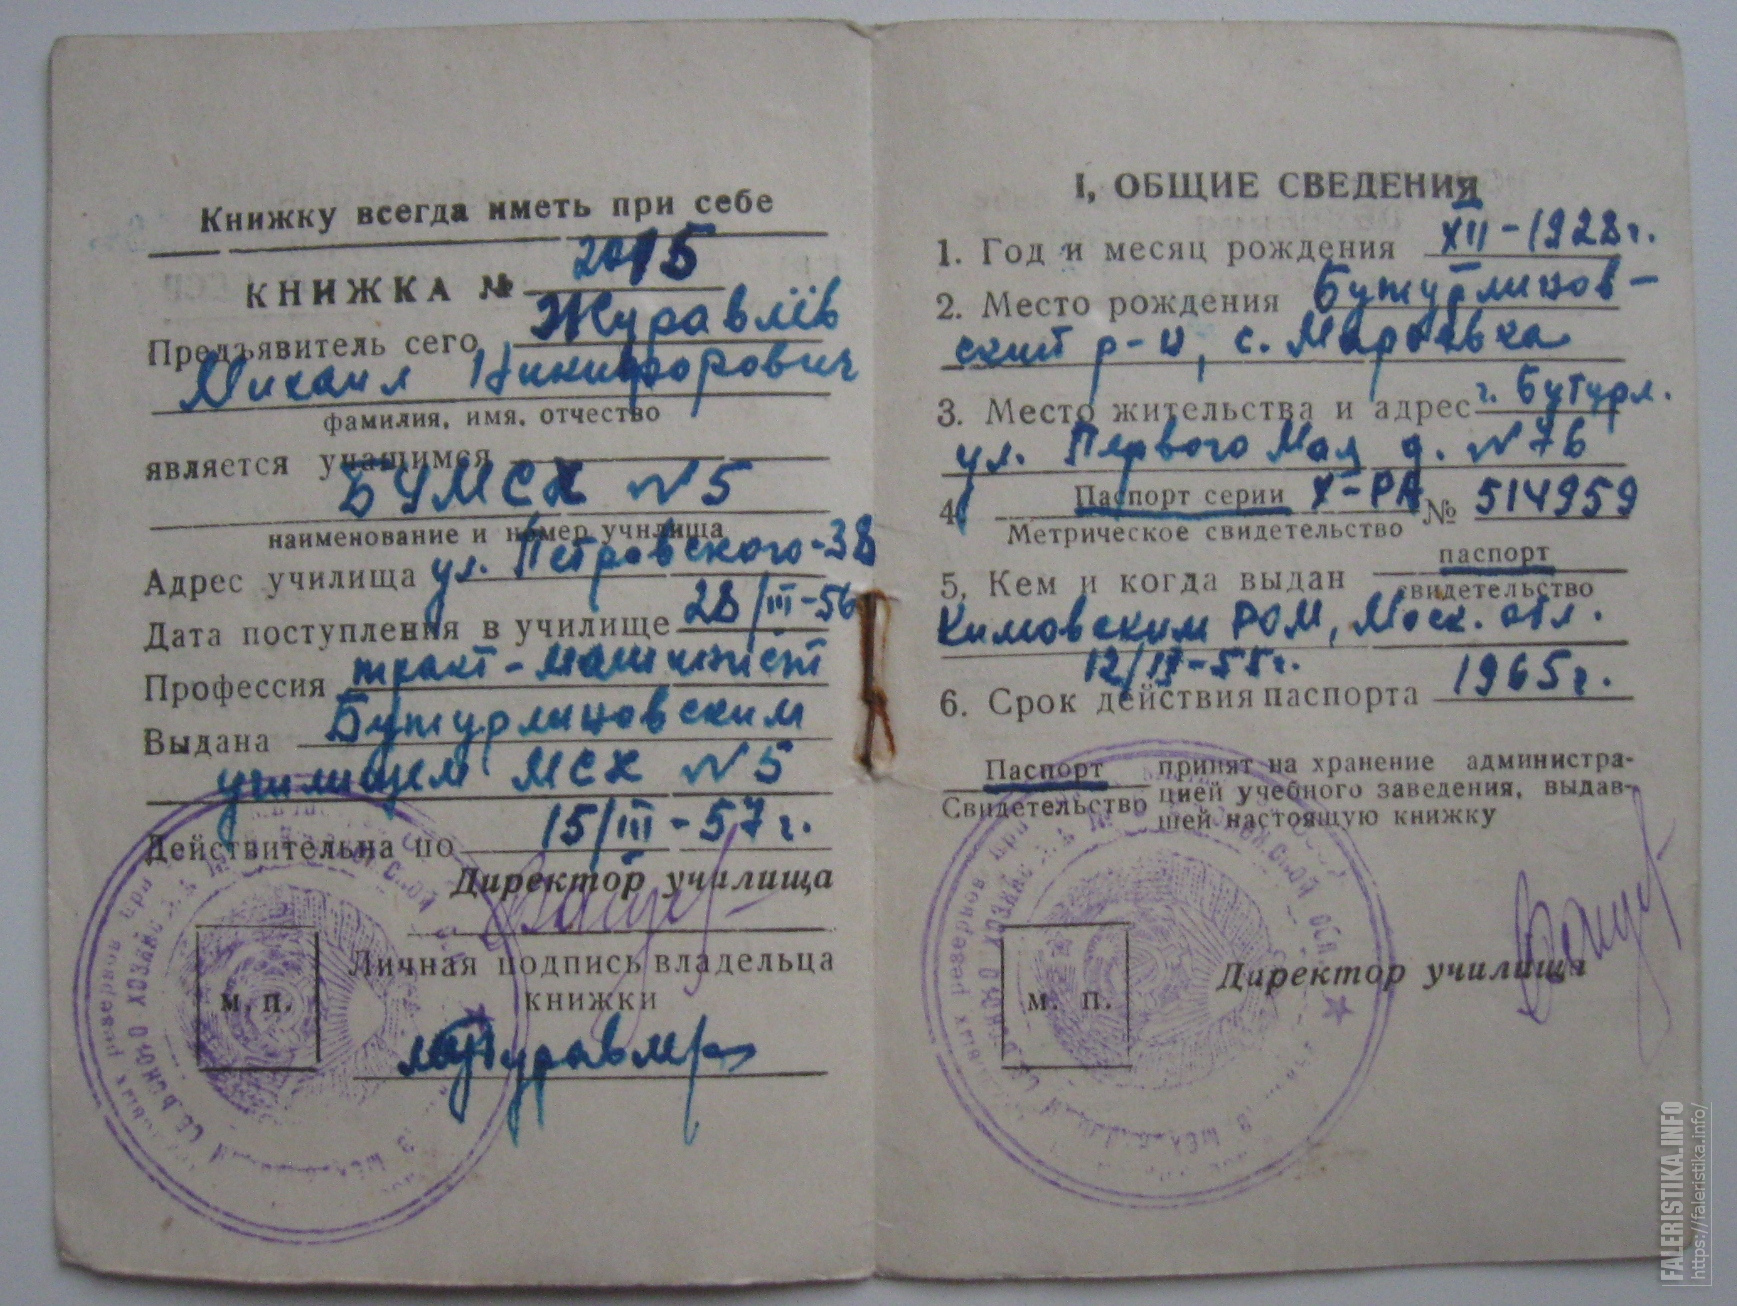 Книжку всегда иметь при себе
КНИЖКА № 2015
Предъявитель сего Журавлёв
Михаил Никифорович
фамилия, имя, отчество
является учащимся
БУМСХ №5
наименование и номер училища
Адрес училища ул. Петровского-38
Дата поступления в училище 28/III-56
Профессия тракт-машинист
Выдана Бутурлиновским
училищем МСХ №5
Действительна по 15/III-57г.
Директор училища
Личная подпись владельца
книжки
м. п.
I, ОБЩИЕ СВЕДЕНИЯ
1. Год и месяц рождения XII-1928г.
2. Место рождения Бутурлинов-
ский р-н, с.
3. Место жительства и адрес г. Бутурл.
ул. Первого Мая д. №76
4. Паспорт серии X-РА № 514959
Метрическое свидетельство
паспорт
5, Кем и когда выдан
свидетельство
Кимовским РОМ, Моск. обл.
6. Срок действия паспорта 1965г.
Паспорт принят на хранение администра-
Свидетельство цией учебного заведения, выдав-
шей настоящую книжку
Директор училища
м. п.
FALERISTIKA.INFO
https://faleristika.info/